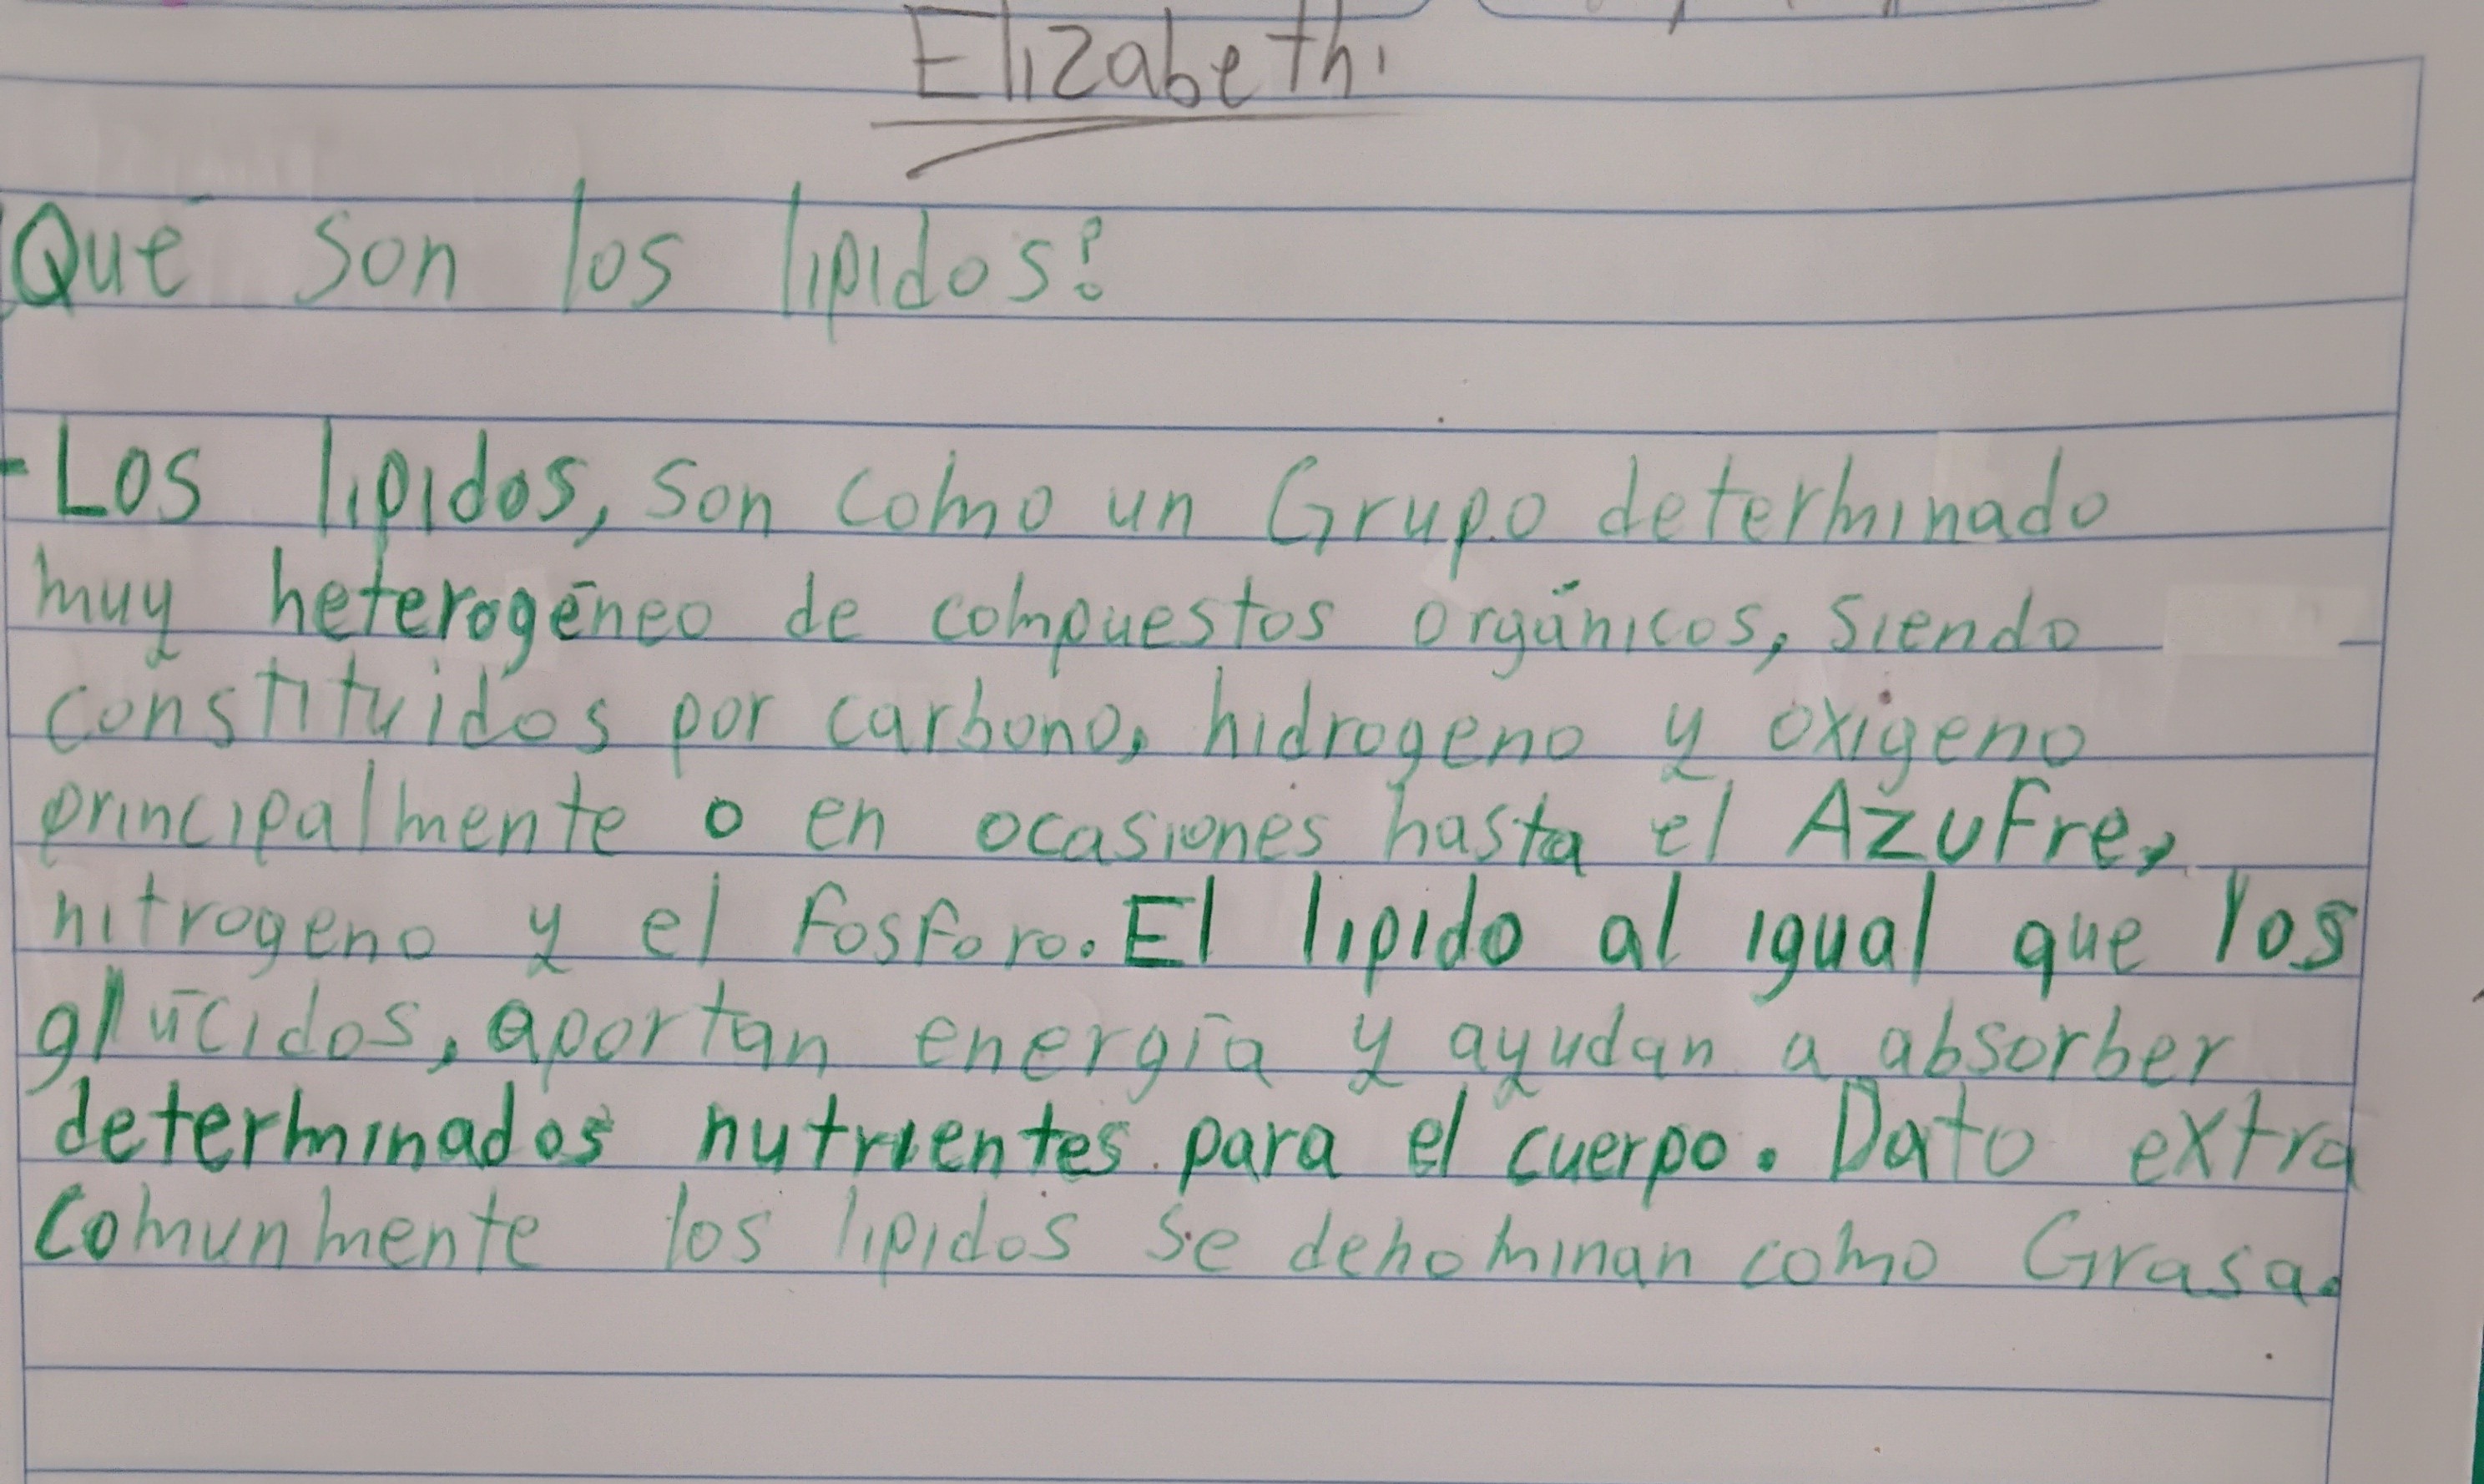 Elizabeth.
Qué son los lipidos?
-Los lipidos, son como un Grupo determinado
muy heterogéneo de compuestos orgánicos, siendo
constituidos por carbono, hidrogeno y oxigeno
principalmente o en ocasiones hasta el AzuFre,
nitrogeno y el fosforo. El lipido al igual que los
glúcidos, aportan energía y ayudan a absorber
determinados nutrientes para el cuerpo. Dato extra
Comunmente los lipidos se denominan como Grasa.